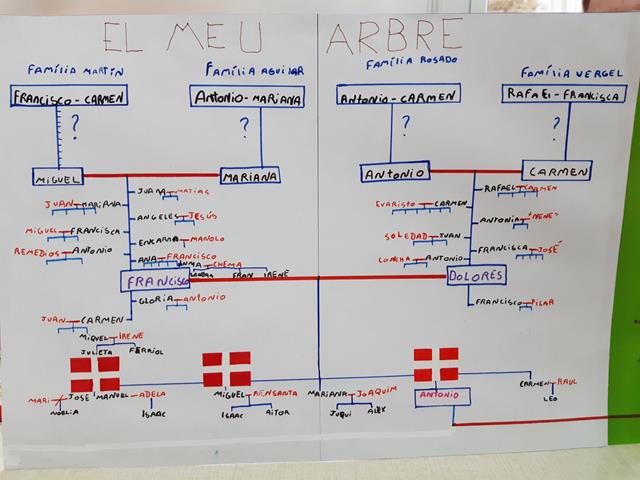 EL MEU ARBRE
FAMÍLIA MARTÍN
FAMÍLIA AGUILAR
FAMÍLIA ROSADO
FAMÍLIA VERGEL
FRANCISCO - CARMEN
ANTONIO - MARIANA
ANTONIO - CARMEN
RAFAEL - FRANCISCA
? ? ? ?
MIGUEL
MARIANA
ANTONIO
CARMEN
JUANA MATIAS
JUAN MARIANA
ANGELES JESÚS
MIGUEL FRANCISCA
ENCARNA MANOLO
REMEDIOS ANTONIO
ANA FRANCISCO
CHEMA
FRAN IRENE
RAFAEL CARMEN
EVARISTO CARMEN
ANTONIA
SOLEDAD JUAN
FRANCISCA JOSÉ
CONCHA ANTONIO
FRANCISCO
DOLORES
GLORIA ANTONIO
FRANCISCO PILAR
JUAN CARMEN
MIGUEL IRENE
JULIETA FERRIOL
MARI JOSE MANUEL - ADELA
NOELIA ISAAC
MIGUEL
ISAAC AITOR
MARIANA JOAQUIM
JUQUI ÀLEX
ANTONIO
CARMEN RAUL
LEO